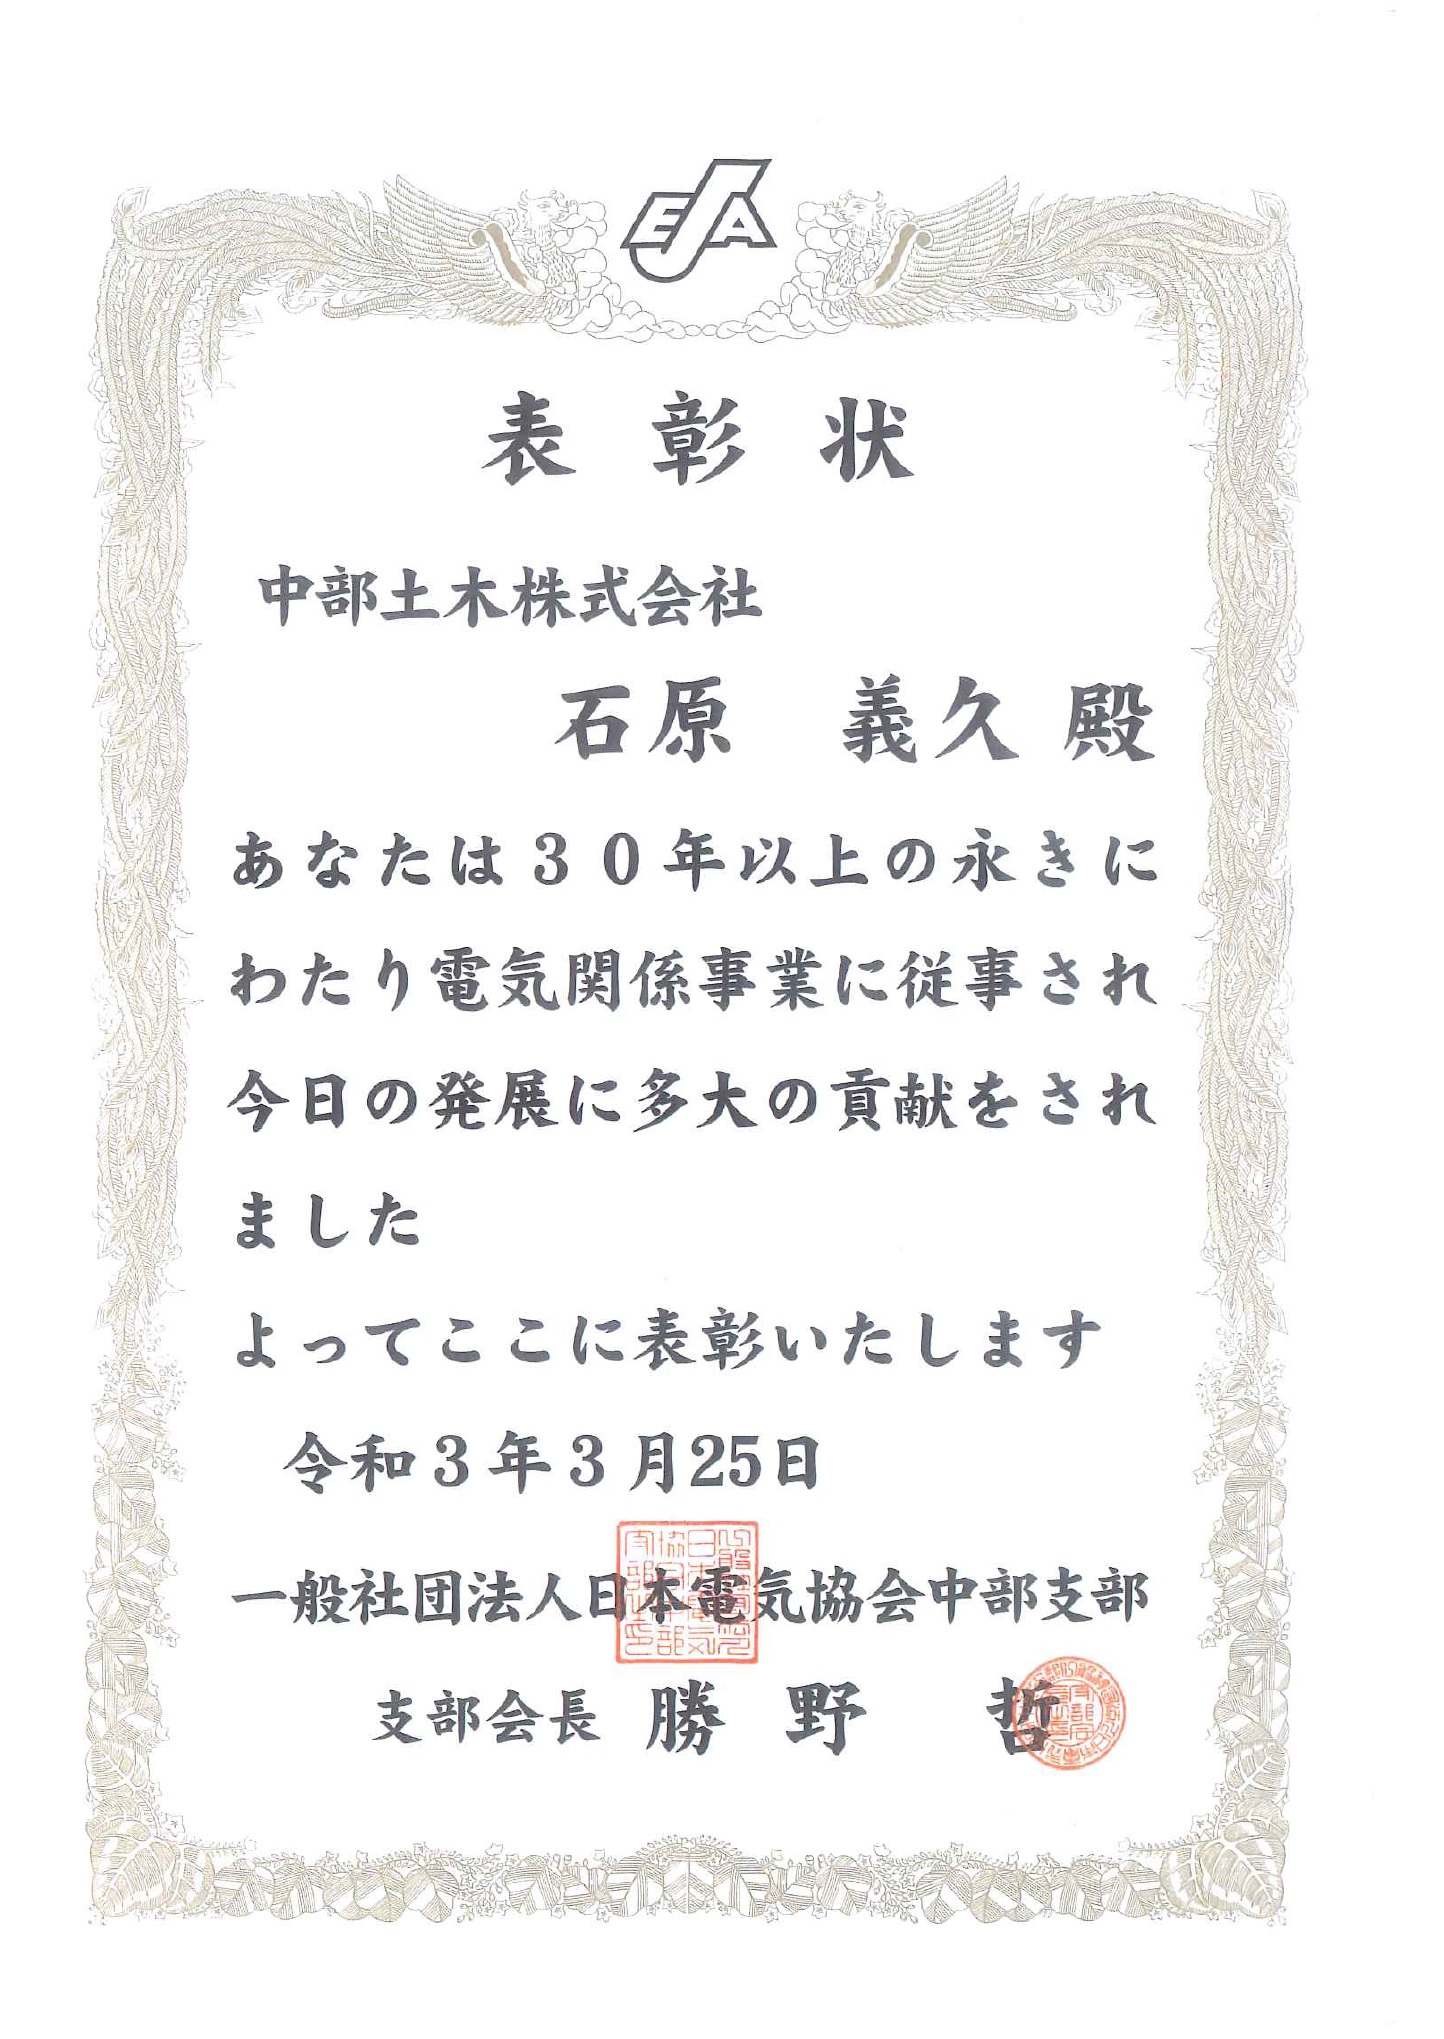 EJA
表彰状
中部土木株式会社
石原 義久 殿
あなたは30年以上の永きに
わたり電気関係事業に従事され
今日の発展に多大の貢献をされ
ました
よってここに表彰いたします
令和3年3月25日
一般社団法人日本電気協会中部支部
支部会長 勝野 哲